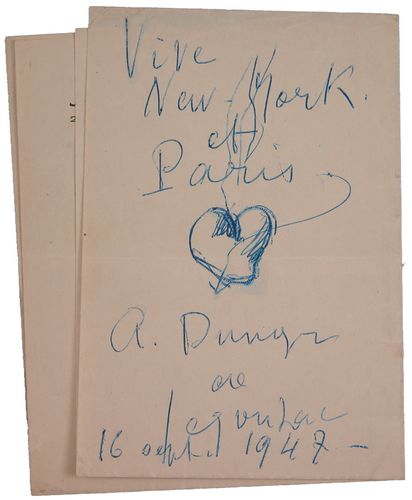 Vive
New-York.
et
Paris
A. Dunoyer
de
Segonzac
16 sept. 1947 –